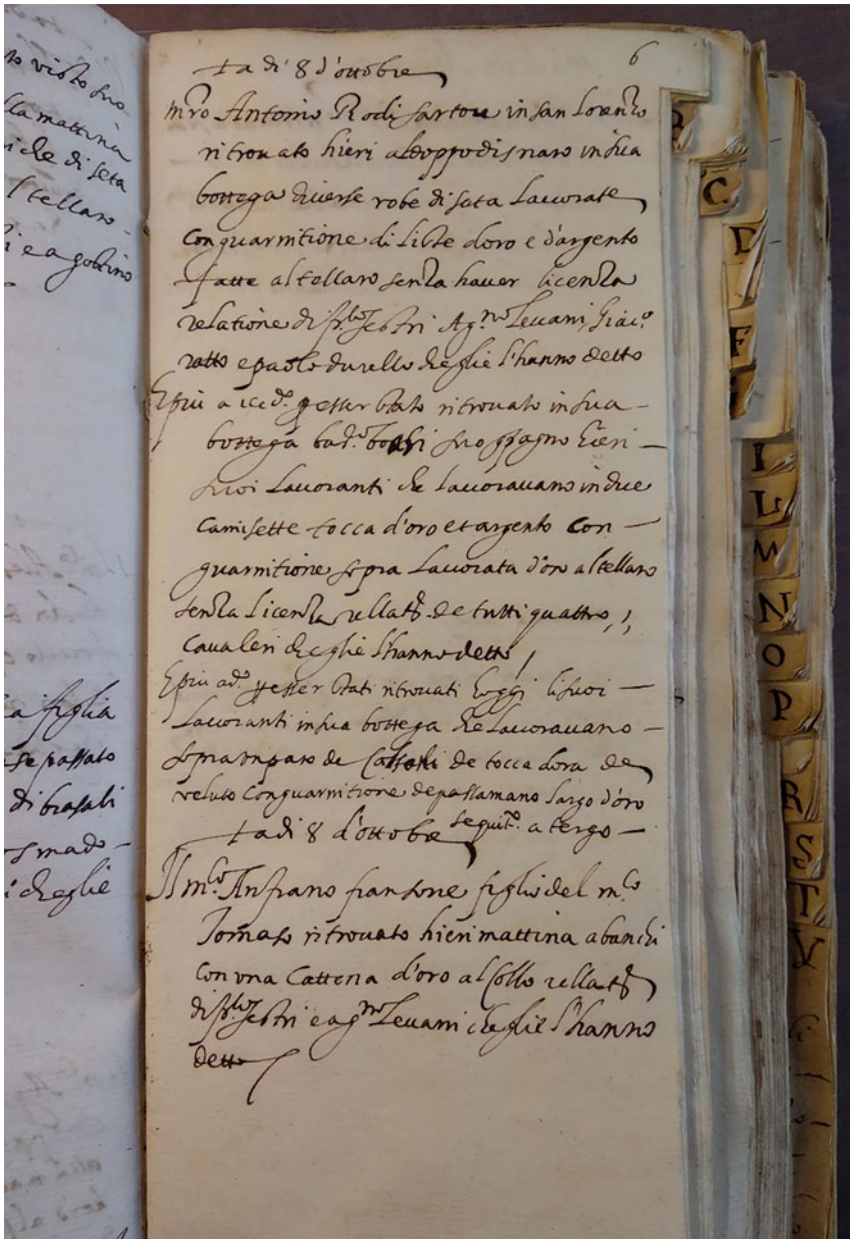 to visto suo
lla mattina
i che di seta
l tellaro -
i e agostino
a figlia
se passato
di brasali
i cheglie
6
+ a di 8 d'ottobre
m.ro Antonio Rodi sartore in san Lorenzo
ritrovato hieri al doppo disnaro in sua
bottega diverse robe di seta Lavorate
con guarnitione di liste d'oro e d'argento
fatte al tellaro senza haver licenza
relatione di fr.co sestri Ag.no Levami, Giac.o
ratto e paolo durello cheglie l'hanno detto
E piu a per esser stato ritrovato in sua -
bottega suo hieri -
suoi Lavoranti che lavoravano in due
Camisette tocca d'oro et argento con -
guarnitione sopra Lavorata d'oro al tellaro
senza Licenza rellat.e de tutti quattro,
Cavaleri cheglie l'hanno detto
E piu a d.o per esser stati ritrovati hoggi li suoi -
Lavoranti in sua bottega che Lavoravano -
sopra un paro de de tocca d'ora de
veluto con guarnitione de passamano largo d'oro
+ a di 8 d'ottobre seguit.o a tergo -
Il m.co Anfrano fransone figlio del m.co
Tomaso ritrovato hieri mattina a banchi
con una Cattena d'oro al Collo rellat.e
di fr.co sestri e ag.no Levami cheglie l'hanno
detto
C
D
F
I
L
M
N
O
P
R
S
T
V